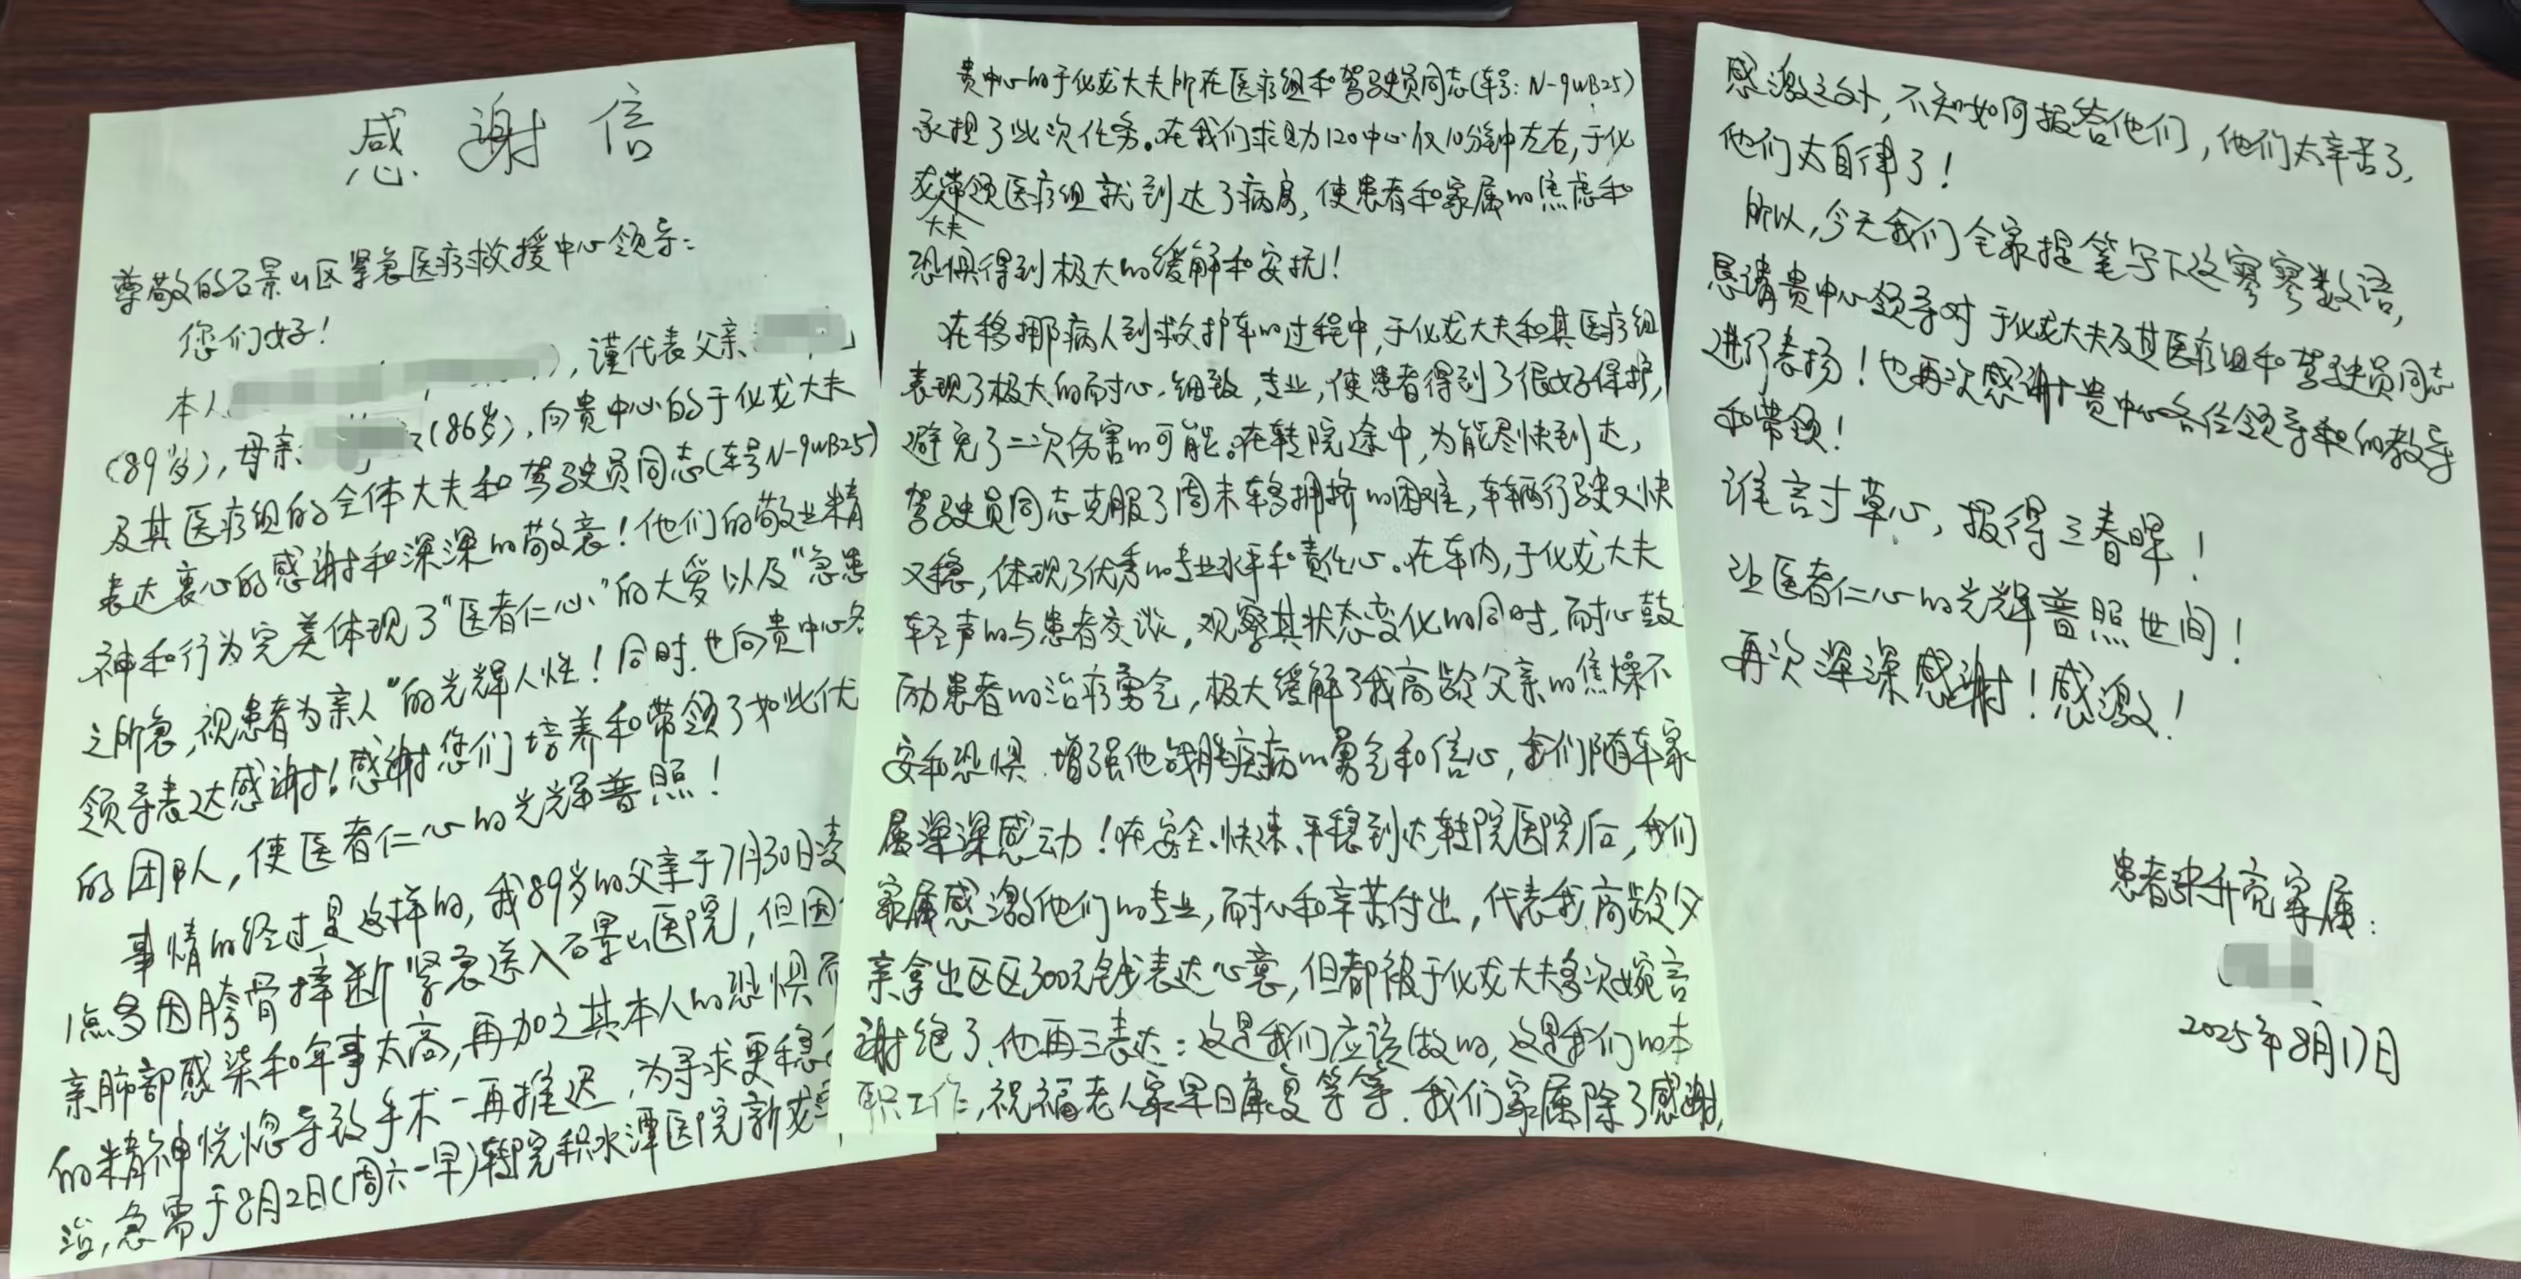 感谢信
尊敬的石景山区紧急医疗救援中心领导：
您们好！
本人 ），谨代表父亲
（89岁），母亲 （86岁），向贵中心的于仪龙大夫
及其医疗组的全体大夫和驾驶员同志（车号N-9WB25）
表达衷心的感谢和深深的敬意！他们的敬业精
神和行为完美体现了“医者仁心”的大爱以及“急患
之所急，视患者为亲人”的光辉人性！同时，也向贵中心各
领导表达感谢！感谢您们培养和带领了如此优
的团队，使医者仁心的光辉普照！
事情的经过是这样的，我89岁的父亲于7月30日凌
1点多因胯骨摔断紧急送入石景山医院，但因
亲肺部感染和年事太高，再加之其本人的恐惧而
的精神恍惚导致手术一再推迟，为寻求更稳
治，急需于8月2日（周六一早）转院积水潭医院新龙
贵中心的于仪龙大夫所在医疗组和驾驶员同志（车号：N-9WB25）
承担了此次任务。在我们求助120中心仅10分钟左右，于仪
龙大夫带领医疗组就到达了病房，使患者和家属的焦虑和
恐惧得到极大的缓解和安抚！
在移挪病人到救护车的过程中，于仪龙大夫和其医疗组
表现了极大的耐心、细致，专业，使患者得到了很好保护，
避免了二次伤害的可能。在转院途中，为能尽快到达，
驾驶员同志克服了周末车多拥挤的困难，车辆行驶又快
又稳，体现了优秀的专业水平和责任心。在车内，于仪龙大夫
轻声的与患者交谈，观察其状态变化的同时，耐心鼓
励患者的治疗勇气，极大缓解了我高龄父亲的焦燥不
安和恐惧，增强他战胜疾病的勇气和信心，我们随车家
属深深感动！在安全、快速、平稳到达转院医院后，我们
家属感激他们的专业，耐心和辛苦付出，代表我高龄父
亲拿出区区300元钱表达心意，但都被于仪龙大夫多次婉言
谢绝了，他再三表达：这是我们应该做的，这是我们的本
职工作，祝福老人家早日康复等等。我们家属除了感谢，
感激之外，不知如何报答他们，他们太辛苦了，
他们太自律了！
所以，今天我们全家提笔写下这寥寥数语，
恳请贵中心领导对于仪龙大夫及其医疗组和驾驶员同志
进行表扬！也再次感谢贵中心各位领导和的教导
和带领！
谁言寸草心，报得三春晖！
让医者仁心的光辉普照世间！
再次深深感谢！感激！
患者 升亮家属：
2025年8月17日